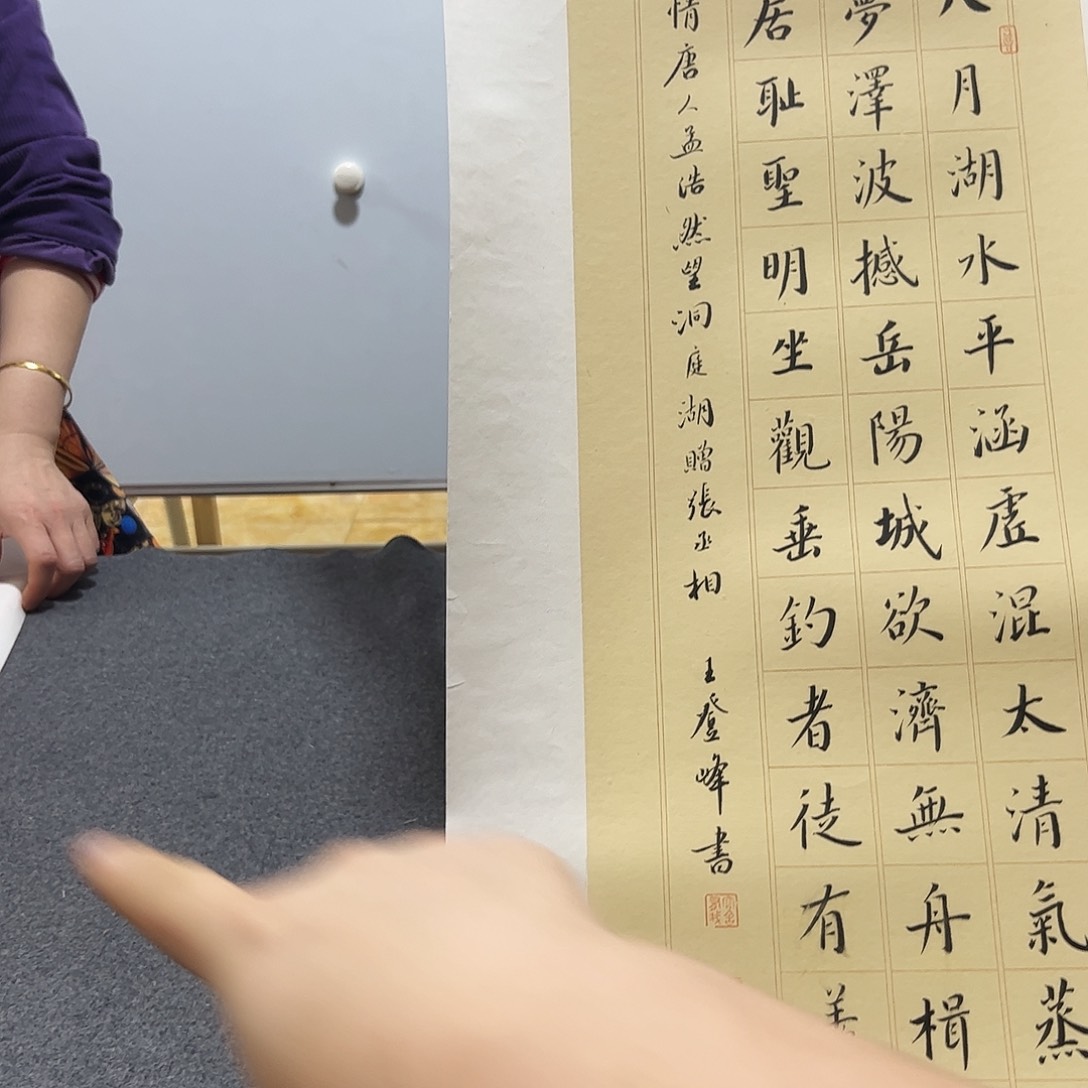 八月湖水平涵虛混太清氣蒸
夢澤波撼岳陽城欲濟無舟楫
居耻聖明坐觀垂釣者徒有
情唐人孟浩然望洞庭湖贈張丞相 王登峰書